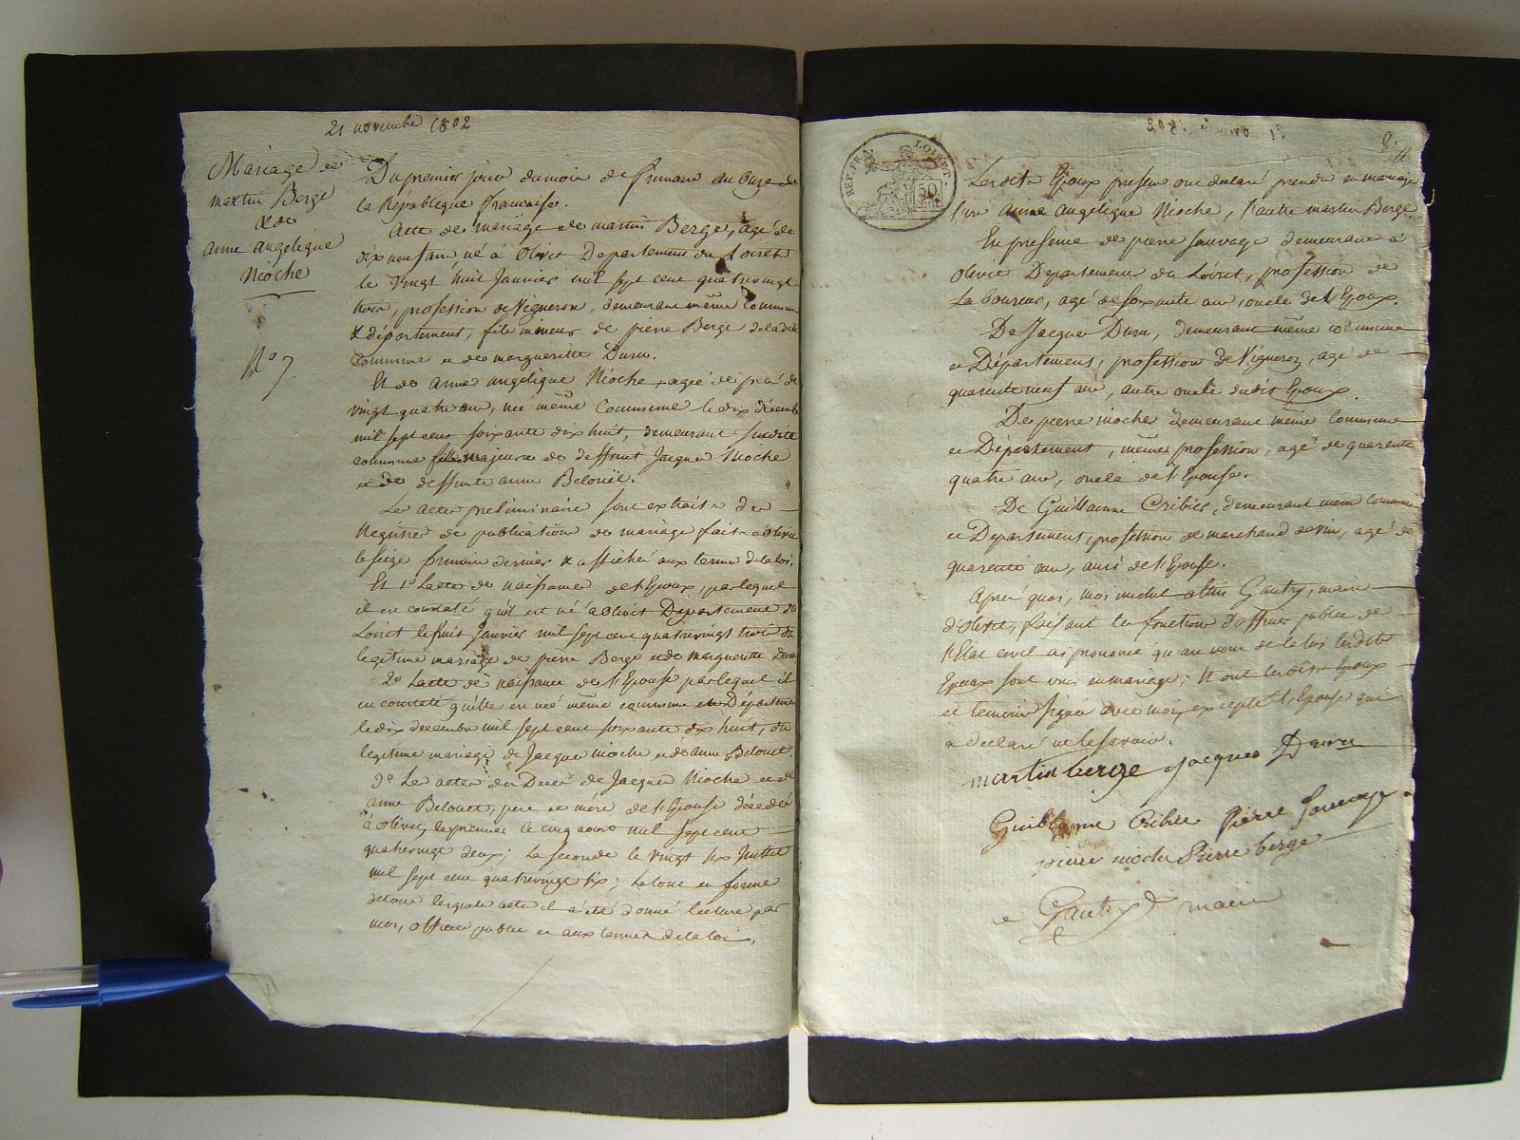 21 novembre 1802
Mariage de
martin Berge
& de
anne angelique
Nioche
N° 7
Du premier jour du mois de frimaire an Onze de
la République française.
Acte de mariage de martin Berge, agé de
dix neuf ans né à Olivet Departement du Loiret
le vingt huit Janvier mil sept cent quatrevingt
trois, profession de Vigneron, demeurant même commune
& département, fils mineur de pierre Berge de la dite
Commune et de marguerite Duru.
Et de anne angelique Nioche, agée de près de
vingt quatre ans, née même Commune le dix décembre
mil sept cent soixante dix huit, demeurant susdite
commune fille majeure de deffunt Jacques Nioche
et de deffunte anne Belouët.
Les actes preliminaires sont extraits des
Registres de publication de mariage faite a olivet
le seize brumaire dernier & affiché aux termes de la loi.
Et 1° L'acte de naissance de l'Epoux, par lequel
il est constaté qu'il est né a Olivet Département du
Loiret le huit Janvier mil sept cent quatrevingt trois du
legitime mariage de pierre Berge et de marguerite Duru
2° L'acte de naissance de l'Epouse par lequel il
est constaté qu'elle est née même commune et Département
le dix decembre mil sept cent soixante dix huit, du
legitime mariage de Jacques nioche et de anne Belouet.
3° Les actes de Deces de Jacques Nioche et de
anne Belouet, pere et mére de l'Epouse décedés
à olivet, le premier le cinq aout mil sept cent
quatrevingt deux; La seconde le vingt six Juillet
mil sept cent quatrevingt six; Le tout en forme
de tous lesquels actes il a été donné lecture par
moi, officier public et aux termes de la loi.
REP. FRA. LOIRET.
50
8
Lesdits Epoux presens ont declaré prendre en mariage
l'un anne angelique Nioche, l'autre martin Berge.
En presence de pierre sauvage demeurant à
olivet Departement du Loiret, profession de
Laboureur, agé de soixante ans, oncle de l'Epoux.
De Jacques Duru, demeurant même commune
et Département, profession de Vigneron, agé de
quarente neuf ans, autre oncle dudit Epoux.
De pierre nioche demeurant même commune
et Département, même profession, agé de quarente
quatre ans, oncle de l'Epouse.
De Guillaume Cribier, demeurant même commune
et Departement, profession de marchand de vin, agé de
quarente ans, ami de l'Epouse.
Après quoi, moi michel Gautry, maire
d'olivet, faisant les fonctions d'officier public de
l'Etat civil ai prononcé qu'au nom de la loi lesdits
Epoux sont unis en mariage; Et ont lesdits Epoux
et temoins signé avec moi, excepté l'Epouse qui
a declaré ne le savoir.
martin berge Jacques Duru
Guillaume Cribier Pierre Sauvage
pierre nioche Pierre berge
Gautry maire